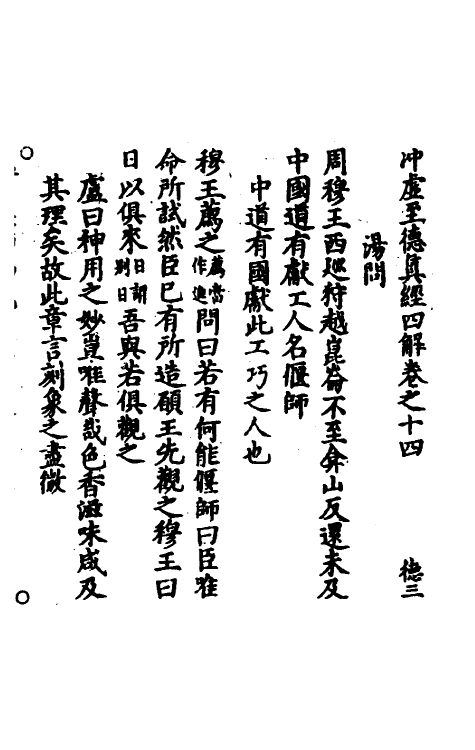 冲虛至德真經四解卷之十四　德三
湯問
周穆王西巡狩越崑崙不至弇山反還未及
中國道有獻工人名偃師
中道有國獻此工巧之人也
穆王薦之薦當作進問曰若有何能偃師曰臣唯
命所試然臣已有所造願王先觀之穆王曰
日以俱來日謂别日吾與若俱觀之
盧曰神用之妙豈唯聲哉色香滋味咸及
其理矣故此章言刻象之盡微